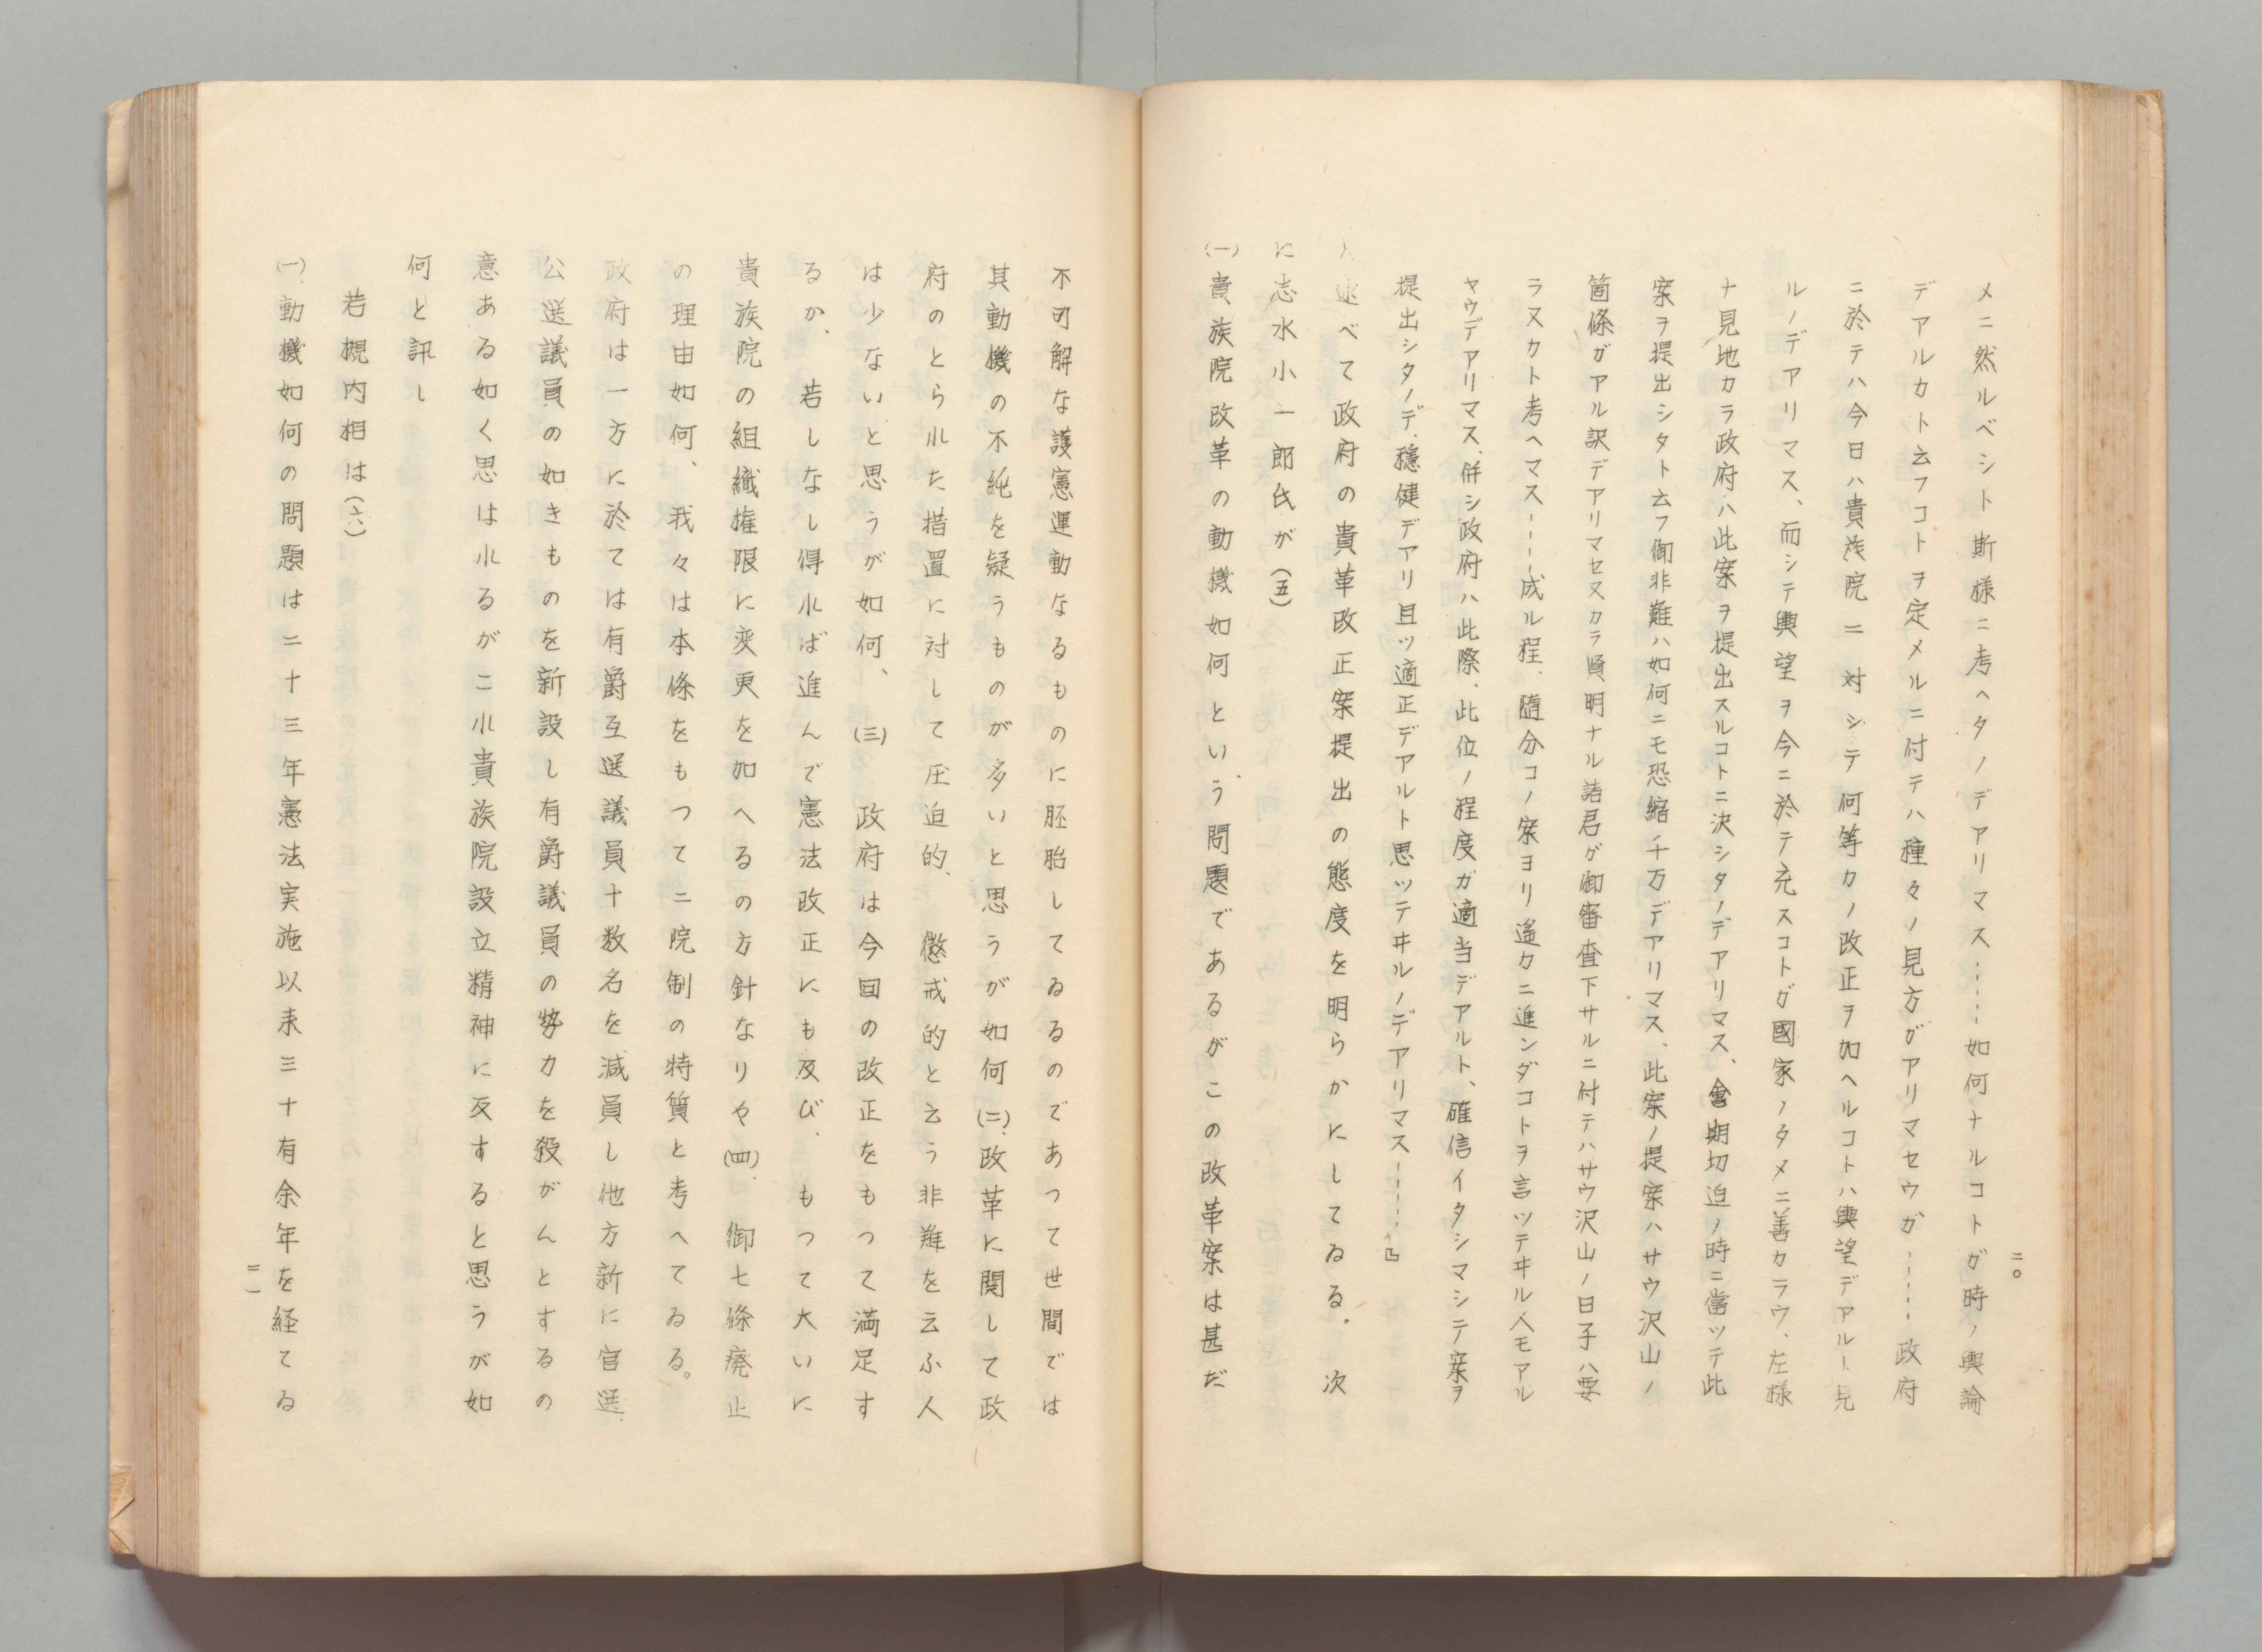 二〇
メニ然ルベシト斯様ニ考ヘタノデアリマス……如何ナルコトガ時ノ輿論
デアルカト云フコトヲ定メルニ付テハ種々ノ見方ガアリマセウガ……政府
ニ於テハ今日ハ貴族院ニ対シテ何等カノ改正ヲ加ヘルコトハ輿望デアルト見
ルノデアリマス、而シテ輿望ヲ今ニ於テ充スコトガ國家ノタメニ善カラウ、左様
ナ見地カラ政府ハ此案ヲ提出スルコトニ決シタノデアリマス、會期切迫ノ時ニ當ツテ此
案ヲ提出シタト云フ御非難ハ如何ニモ恐縮千万デアリマス、此案ノ提案ハサウ沢山ノ
箇條ガアル訳デアリマセヌカラ賢明ナル諸君ガ御審査下サルニ付テハサウ沢山ノ日子ハ要
ラヌカト考ヘマス……成ル程、随分コノ案ヨリ遙カニ進ンダコトヲ言ツテヰル人モアル
ヤウデアリマス、併シ政府ハ此際、此位ノ程度ガ適当デアルト、確信イタシマシテ案ヲ
提出シタノデ、穏健デアリ且ツ適正デアルト思ツテヰルノデアリマス……』
と述べて政府の貴革改正案提出の態度を明らかにしてゐる。次
に志水小一郎氏が(五)
(一)貴族院改革の動機如何という問題であるがこの改革案は甚だ
不可解な護憲運動なるものに胚胎してゐるのであつて世間では
其動機の不純を疑うものが多いと思うが如何(二)、政革に関して政
府のとられた措置に対して圧迫的、懲戒的と云う非難を云ふ人
は少ないと思うが如何、(三)政府は今回の改正をもつて満足す
るか、若しなし得れば進んで憲法政正にも及び、もつて大いに
貴族院の組織権限に変更を加へるの方針なりや(四)、御七條廃止
の理由如何、我々は本條をもつて二院制の特質と考へてゐる。
政府は一方に於ては有爵互選議員十数名を減員し他方新に官選、
公選議員の如きものを新設し有爵議員の勢力を殺がんとするの
意ある如く思はれるがこれ貴族院設立精神に反すると思うが如
何と訊し
若槻内相は(六)
(一)、動機如何の問題は二十三年憲法実施以来三十有余年を経てゐ
二一